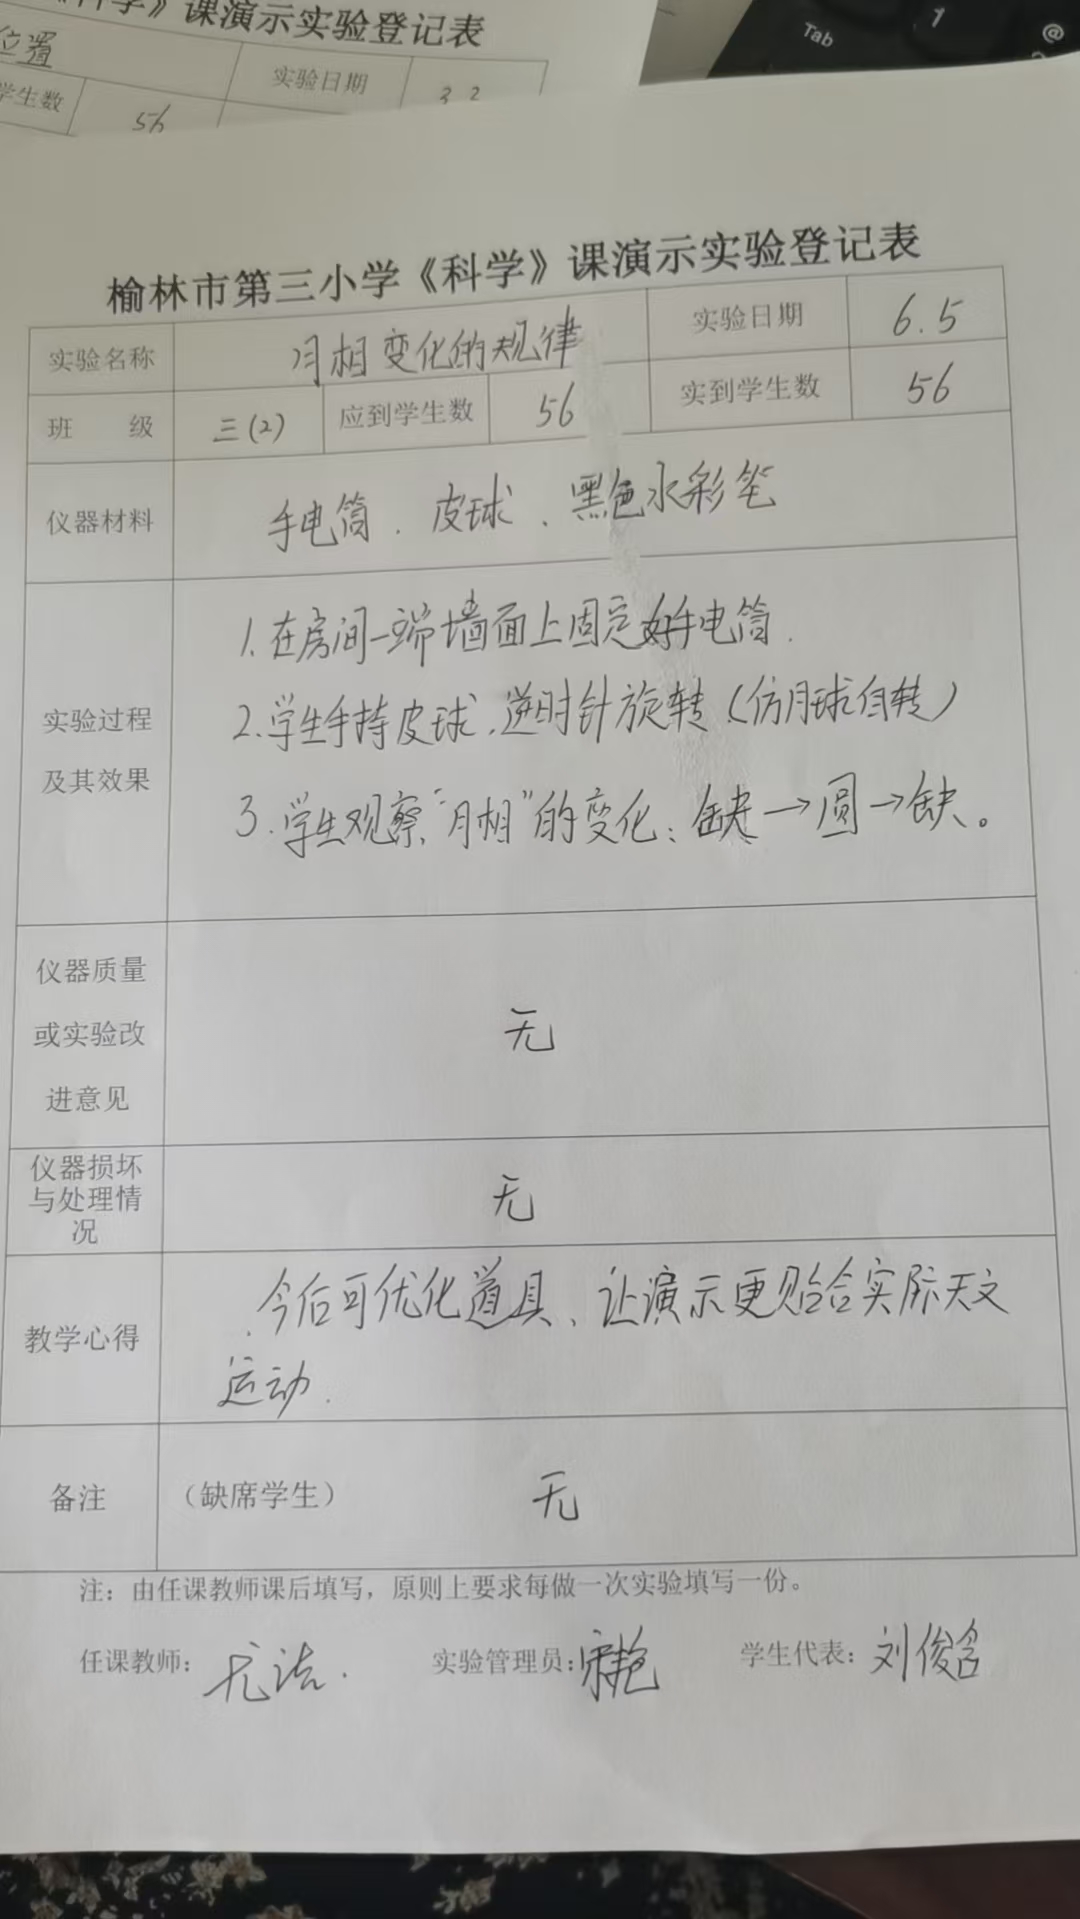 课演示实验登记表
位置
实验日期
学生数
56
Tab
1
@
榆林市第三小学《科学》课演示实验登记表
实验名称 月相变化的规律 实验日期 6.5
班 级 三(2) 应到学生数 56 实到学生数 56
仪器材料 手电筒、皮球、黑色水彩笔
1.在房间一端墙面上固定好手电筒.
实验过程 2.学生手持皮球,逆时针旋转(仿月球自转)
及其效果
3.学生观察“月相”的变化:缺→圆→缺。
仪器质量
或实验改 无
进意见
仪器损坏
与处理情 无
况
今后可优化道具、让演示更贴合实际天文
教学心得
运动.
备注 (缺席学生) 无
注:由任课教师课后填写,原则上要求每做一次实验填写一份。
任课教师: 实验管理员:宋艳 学生代表:刘俊含